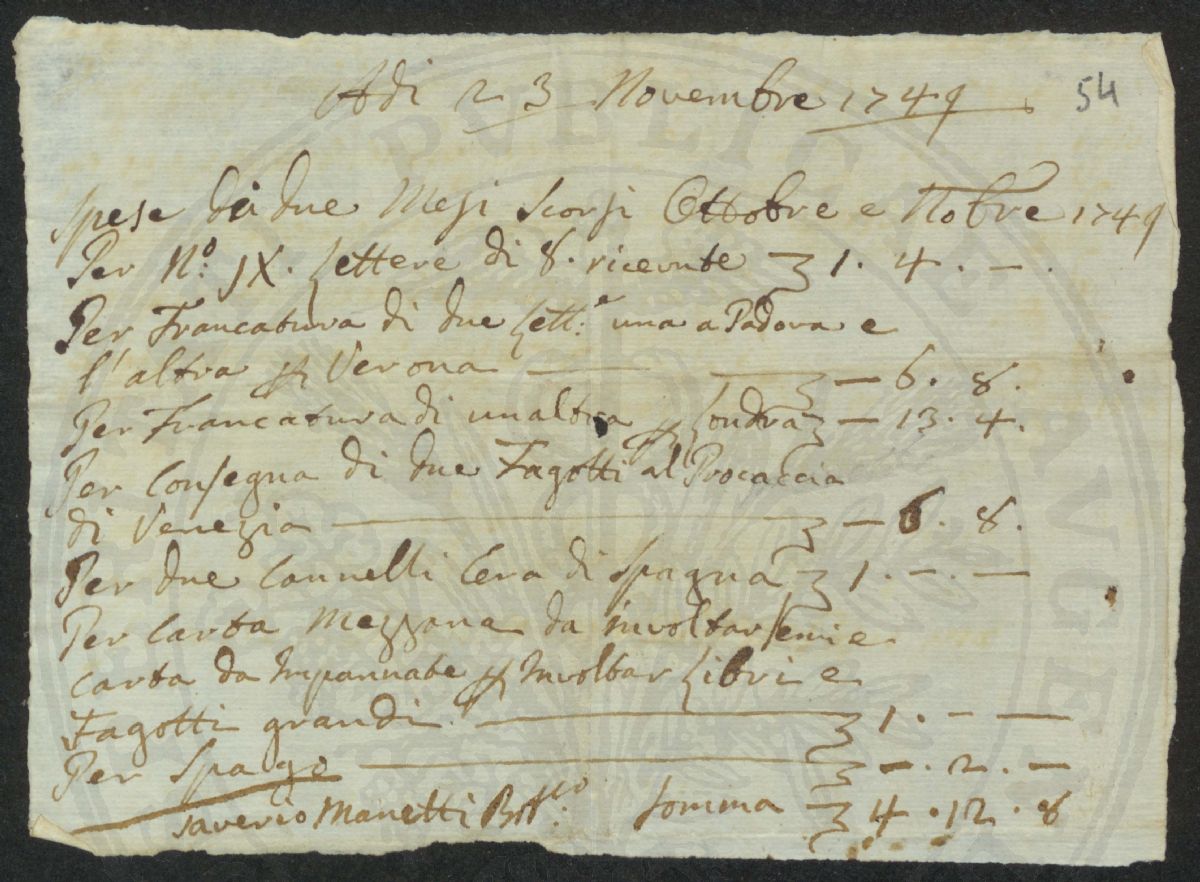 Adi 23 Novembre 1749
54
Spese di due Mesi Scorsi Ottobre e Nobre 1749
Per No: IX. Lettere di 8. ricevute 1. 4. —.
Per Francatura di due Lett.e una a Padova e
l'altra p Verona — — 6. 8.
Per Francatura di un altra p Londra — 13. 4.
Per Consegna di due Fagotti al Procaccia
di Venezia — — 6. 8.
Per due Cannelli Cera di Spagna 1. —. —
Per Carta Mezzana da involtar semi e
Carta da Impannate p Involtar Libri e
Fagotti grandi. — 1. — —
Per Spago — —. 2. —
Saverio Manetti Bott.co Somma 4. 12. 8